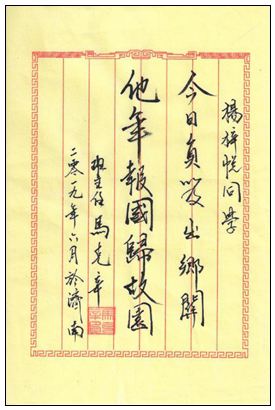 楊梓悅同學
今日負笈出鄉關
他年報國歸故園
班主任 馬克辛
二零一九年六月於濟南